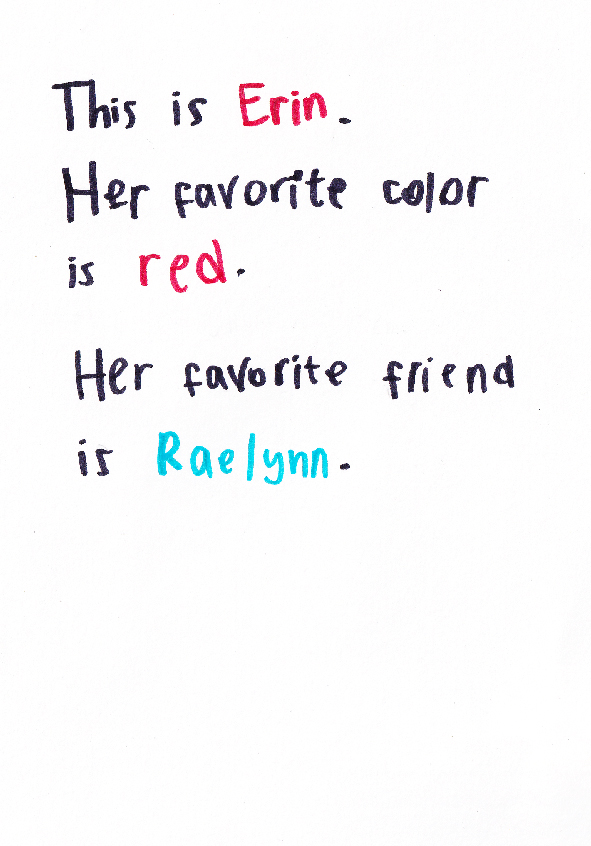 This is Erin.
Her favorite color
is red.
Her favorite friend
is Raelynn.